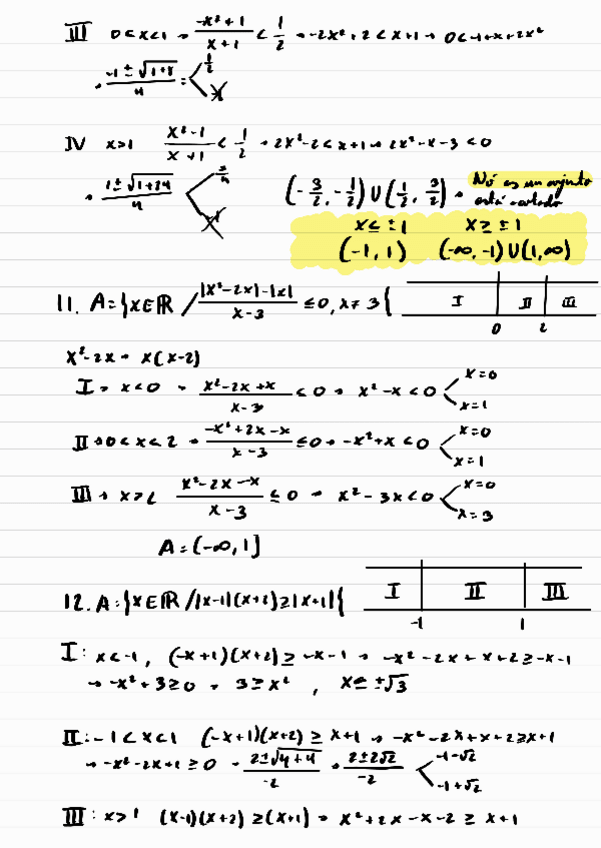 III 0<x<1 → (-x²+1)/(x+1) < 1/2 → -2x²+2<x+1 → 0<-1+x+2x²
→ (-1 ± √(1+8))/4 = 1/2
IV x>1 (x²-1)/(x+1) < 1/2 → 2x²-2<x+1 → 2x²-x-3<0
→ (1 ± √(1+24))/4
(-3/2, -1/2) ∪ (1/2, 3/2) → No es un conjunto
está acotado
x ≤ ±1 x ≥ ±1
(-1, 1) (-∞, -1) ∪ (1, ∞)
11. A = {x∈ℝ / (|x²-2x|-|x|)/(x-3) ≤ 0, x≠3{ I II III
0 2
x²-2x = x(x-2)
I → x<0 → (x²-2x+x)/(x-3) ≤ 0 → x²-x<0 x=0
x=1
II → 0<x<2 → (-x²+2x-x)/(x-3) ≤ 0 → -x²+x<0 x=0
x=1
III → x>2 (x²-2x-x)/(x-3) ≤ 0 → x²-3x<0 x=0
x=3
A = (-∞, 1]
12. A = {x∈ℝ / |x-1|(x+2) ≥ |x+1|{ I II III
-1 1
I: x<-1, (-x+1)(x+2) ≥ -x-1 → -x²-2x+x+2 ≥ -x-1
→ -x²+3 ≥ 0 → 3 ≥ x², x ≤ ±√3
II: -1<x<1 (-x+1)(x+2) ≥ x+1 → -x²-2x+x+2 ≥ x+1
→ -x²-2x+1 ≥ 0 → (2±√(4+4))/-2 = (2±2√2)/-2 -1-√2
-1+√2
III: x>1 (x-1)(x+2) ≥ (x+1) → x²+2x-x-2 ≥ x+1